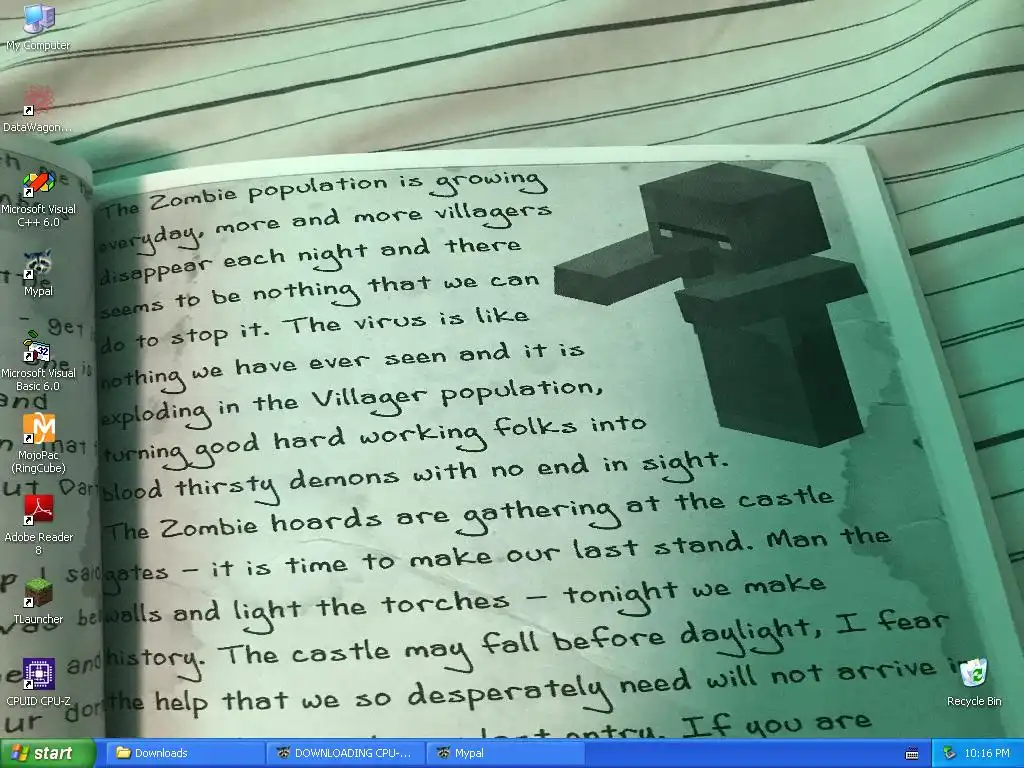 My Computer
DataWagon...
Microsoft Visual
C++ 6.0
Mypal
Microsoft Visual
Basic 6.0
MojoPac
(RingCube)
Adobe Reader
8
TLauncher
CPUID CPU-Z
The Zombie population is growing
everyday, more and more villagers
disappear each night and there
seems to be nothing that we can
do to stop it. The virus is like
nothing we have ever seen and it is
exploding in the Villager population,
turning good hard working folks into
blood thirsty demons with no end in sight.
The Zombie hoards are gathering at the castle
gates – it is time to make our last stand. Man the
walls and light the torches – tonight we make
history. The castle may fall before daylight, I fear
the help that we so desperately need will not arrive in
entry. If you are
Recycle Bin
start
Downloads
DOWNLOADING CPU-...
Mypal
10:16 PM